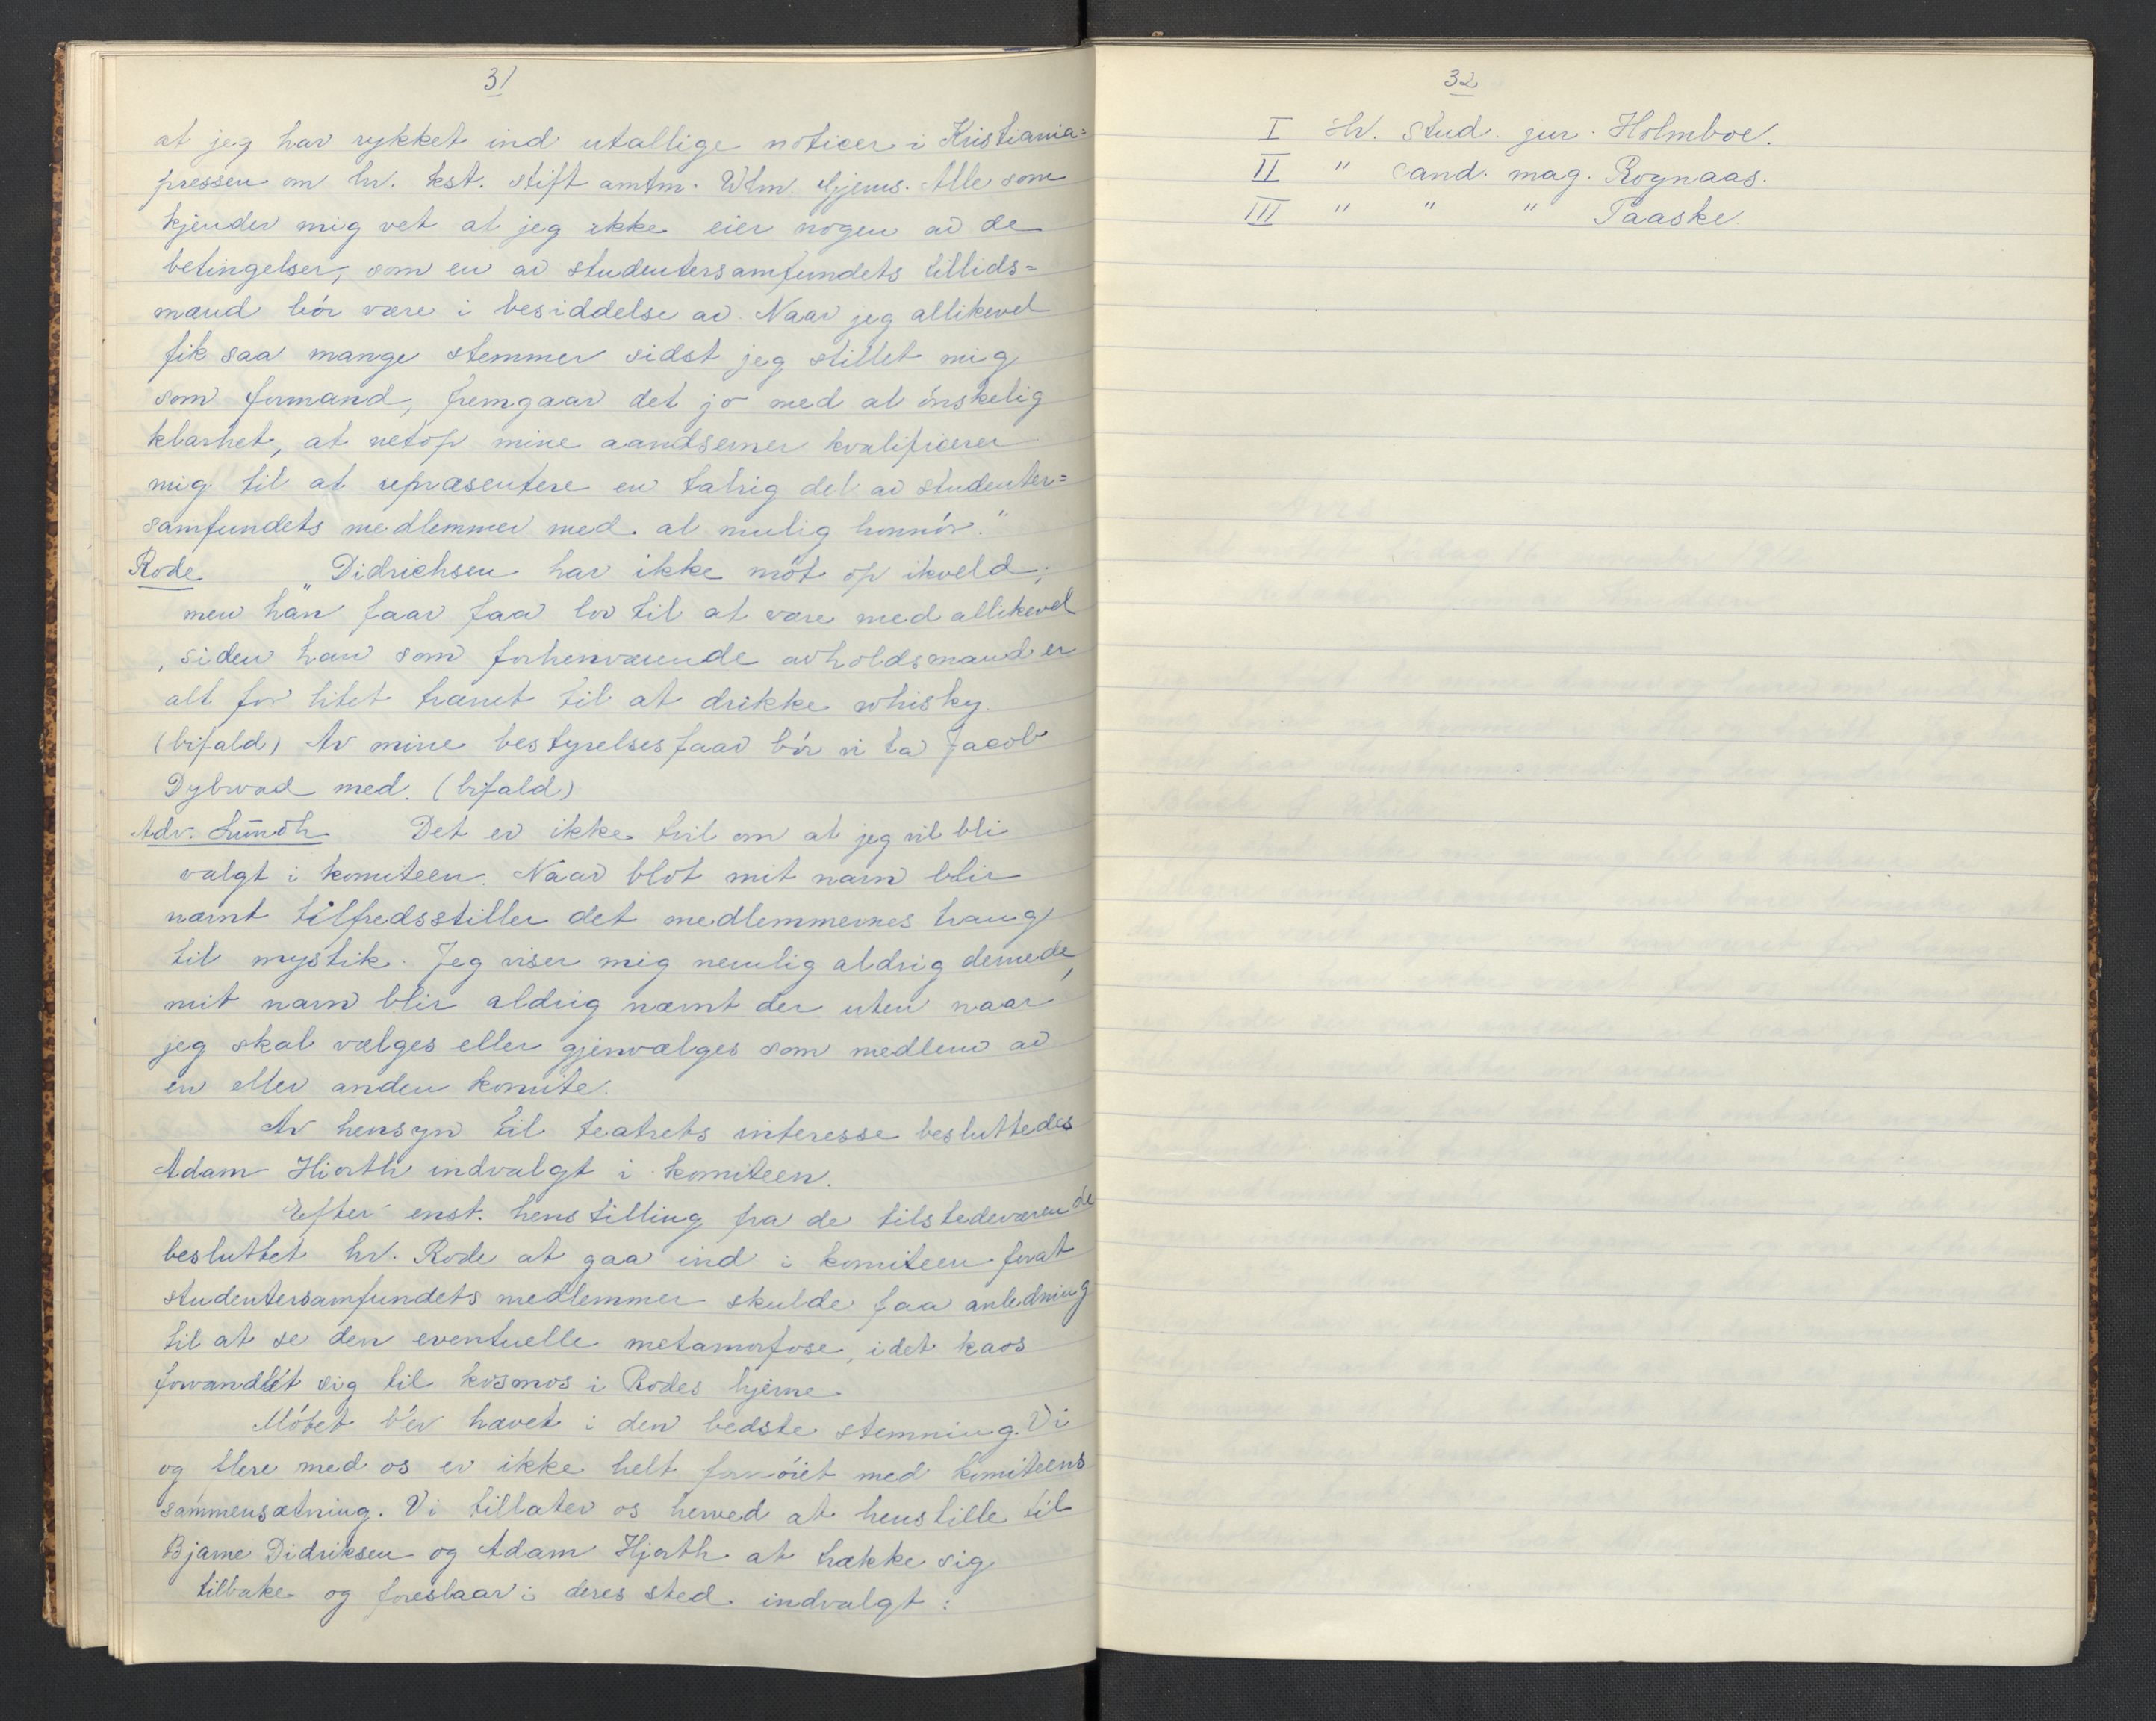 31
at jeg har rykket ind utallige noticer i Kristiania=
pressen om hr. kst. stift amtm. Wlm. Hjems. Alle som
kjender mig vet at jeg ikke eier nogen av de
betingelser, som en av studentersamfundets tillids=
mænd bór være i besiddelse av. Naar jeg allikevel
fik saa mange stemmer sidst jeg stillet mig
som formand, fremgaar det jo med al ónskelig
klarhet, at netop mine aandsevner kvalificerer
mig til at repræsentere en talrig del av studenter=
samfundets medlemmer med al mulig honnór."
Rode „Didrichsen har ikke mót op ikveld;
men han faar faa lov til at være med allikevel
, siden han som forhenværende avholdsmand er
alt for litet trænet til at drikke whisky.
(bifald) Av mine bestyrelsesfaar bór vi ta Jacob
Dybwad med. (bifald)
Adv. Lundh Det er ikke tvil om at jeg vil bli
valgt i komiteen. Naar blot mit navn blir
nævnt tilfredsstiller det medlemmernes trang
til mystik. Jeg viser mig nemlig aldrig dernede,
mit navn blir aldrig nævnt der uten naar
jeg skal vælges eller gjenvælges som medlem av
en eller anden komite.
Av hensyn til teatrets interesse besluttedes
Adam Hiorth indvalgt i komiteen.
Efter enst. henstilling fra de tilstedeværende
besluttet hr. Rode at gaa ind i komiteen forat
studentersamfundets medlemmer skulde faa anledning
til at se den eventuelle metamorfose, idet kaos
forvandlet sig til kosmos i Rodes hjerne.
Mótet blev hævet i den bedste stemning. Vi
og flere med os er ikke helt fornóiet med komiteens
sammensætning. Vi tillater os herved at henstille til
Bjarne Didriksen og Adam Hjorth at trække sig
tilbake og foreslaar i deres sted indvalgt:
32
I Hr. stud. jur. Holmboe.
II " cand. mag. Rognaas.
III " " " Taaske.